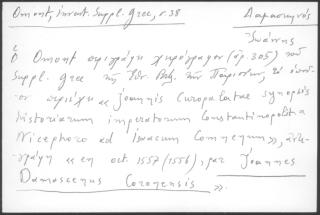 Omont, invent. Suppl. Grec, σ. 38
Δαμασκηνός
Ἰωάννης
Ὁ Omont περιγράφει χειρόγραφον (ἀρ. 305) τοῦ
Suppl. Grec τῆς Ἐθν. Βιβ. τῶν Παρισίων,
περιέχει « Joannis Curopalatae synopsis
historiarum imperatorum Constantinopolit. a
Nicephoro ad Isacum Comnenum »,
« en oct. 1557 (1556), par Joannes
Damascenus Coronensis ».